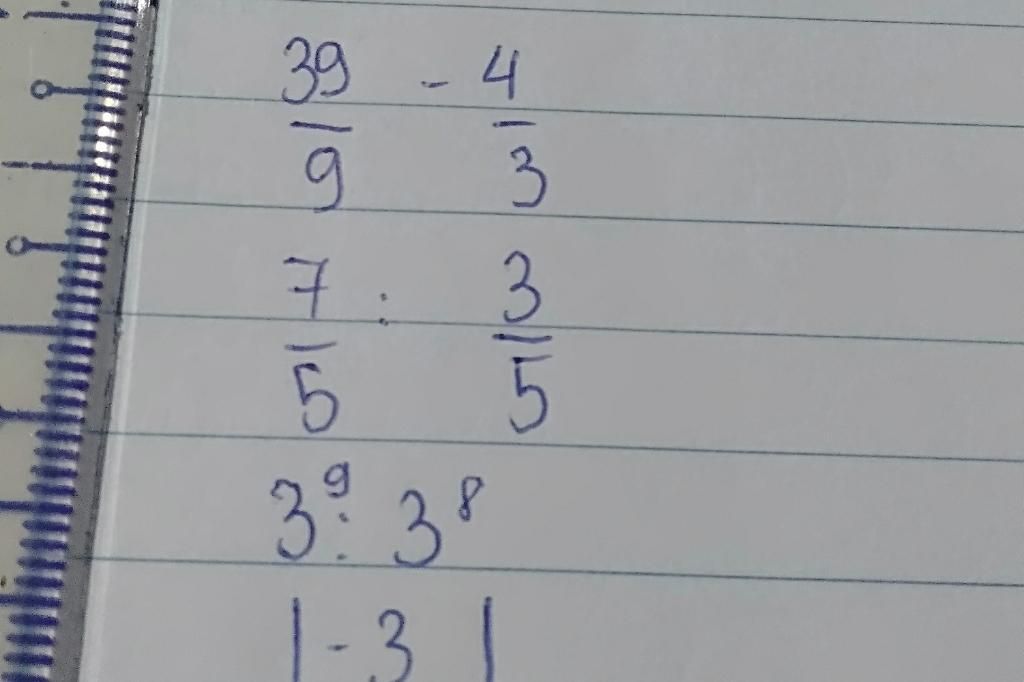 39/9 - 4/3
7/5 : 3/5
3⁹ : 3⁸
|-3|